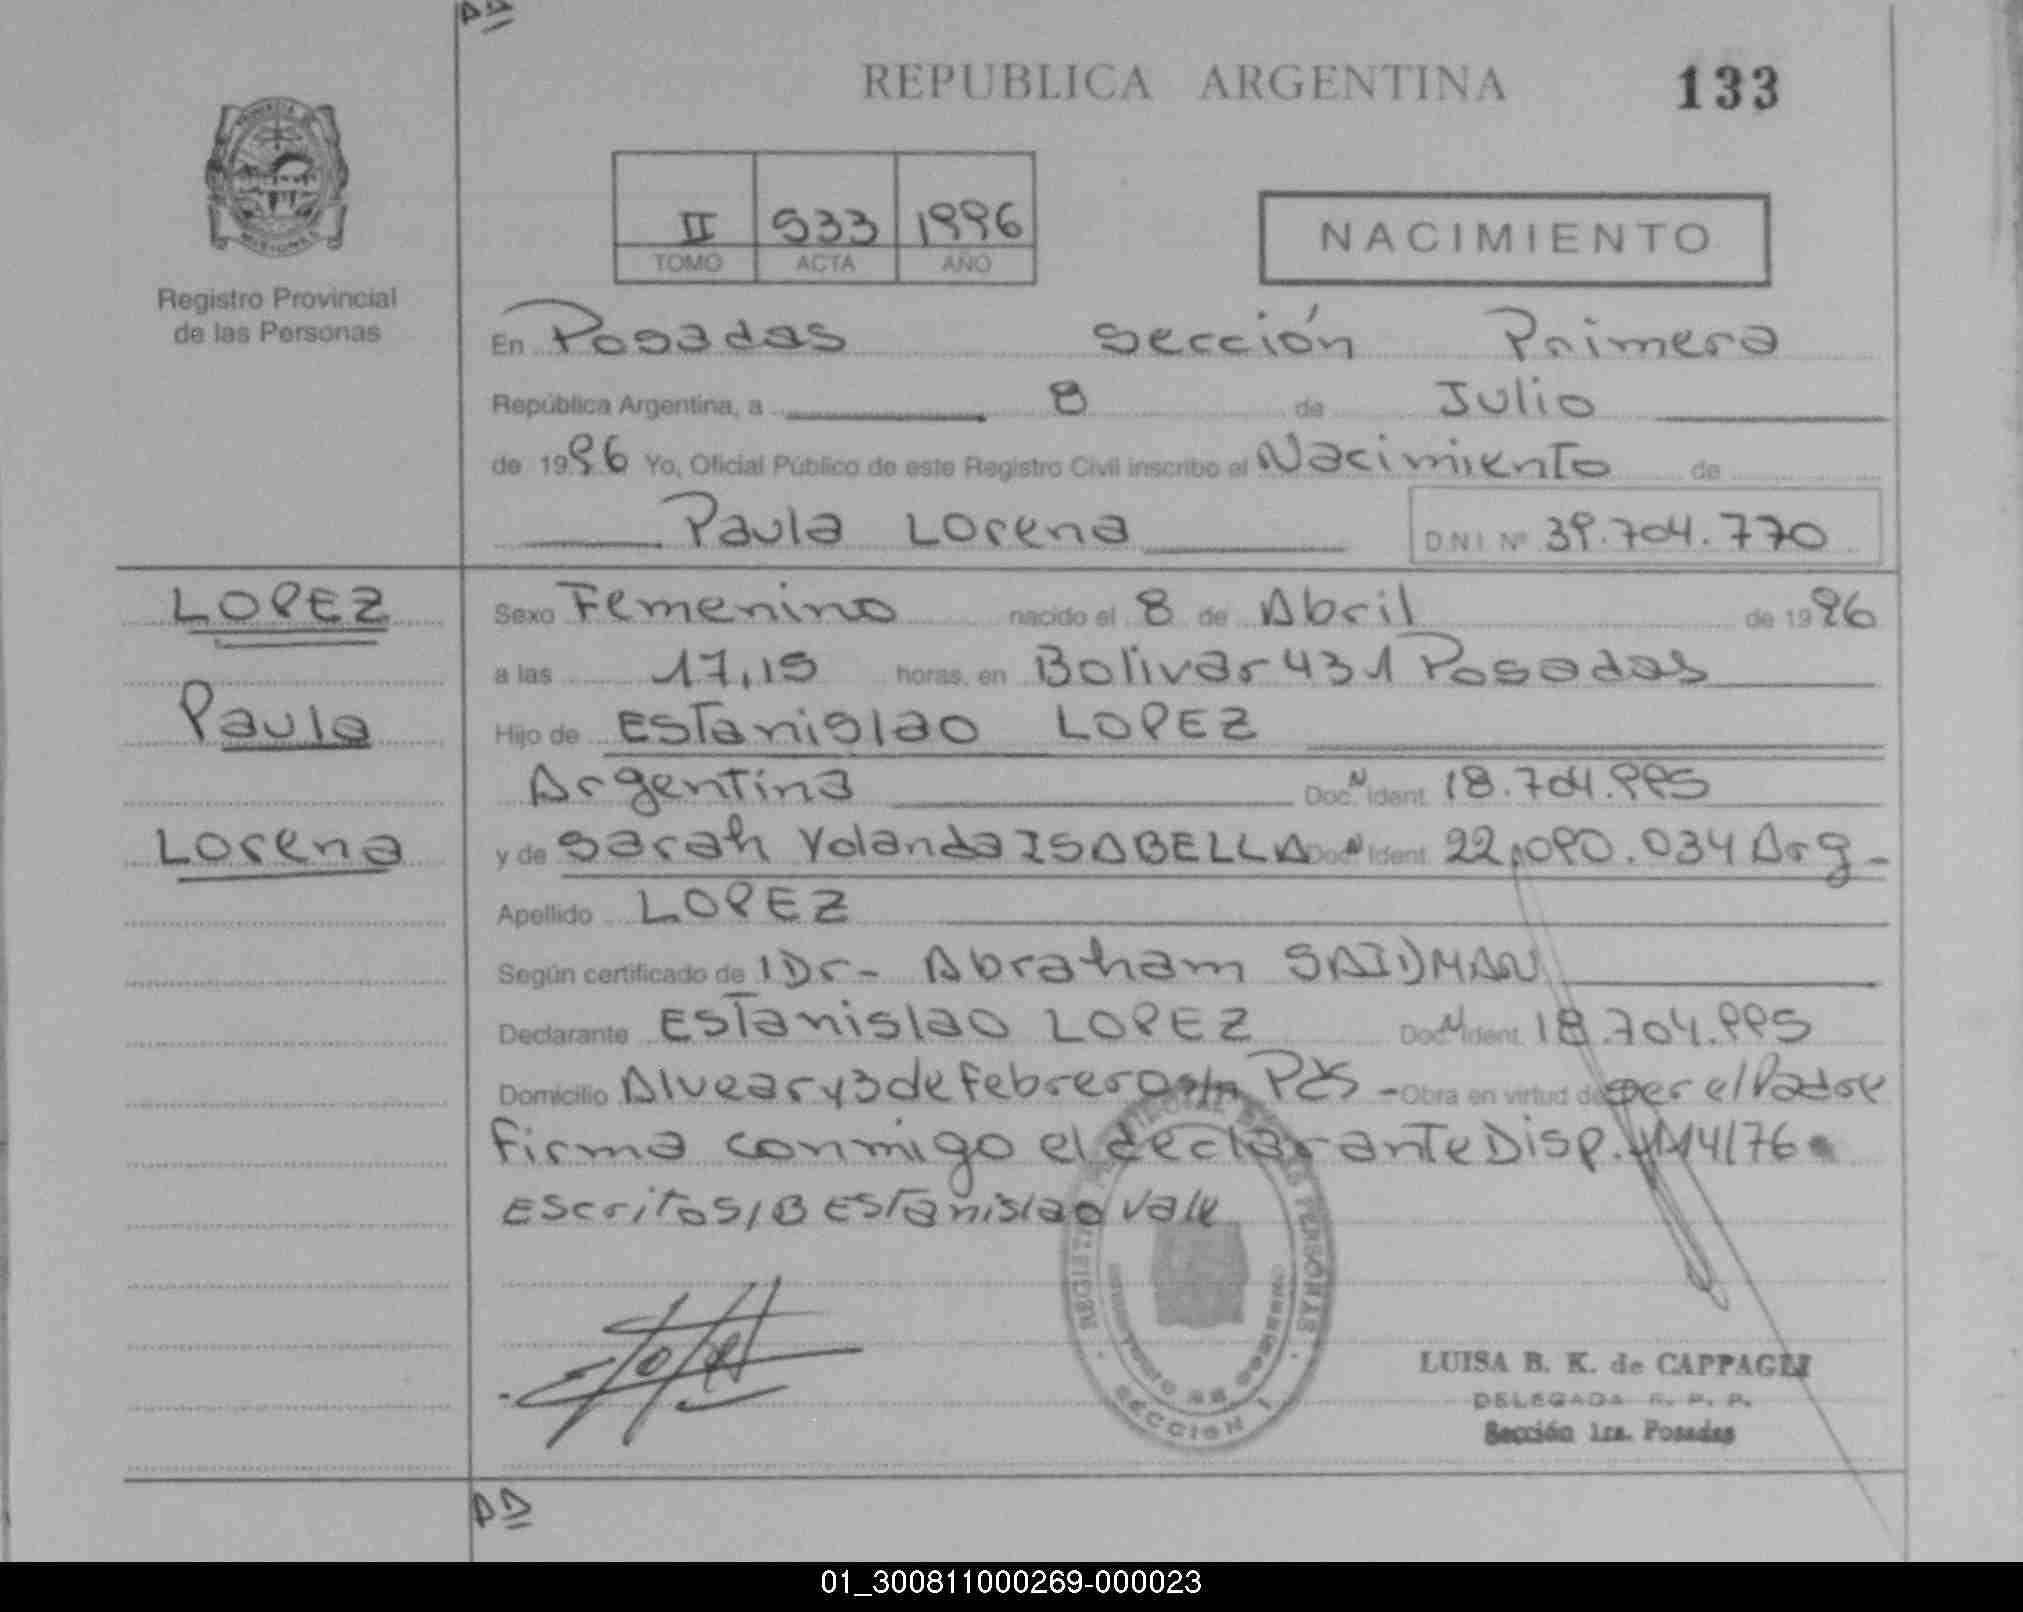 REPUBLICA ARGENTINA 133
II 533 1996
TOMO ACTA AÑO
NACIMIENTO
Registro Provincial
de las Personas
En Posadas sección Primera
República Argentina, a 8 de Julio
de 1996 Yo, Oficial Público de este Registro Civil inscribo el Nacimiento de
Paula Lorena D.N.I. Nº 39.704.770
LOPEZ
Paula
Lorena
Sexo Femenino nacido el 8 de Abril de 1996
a las 17,15 horas, en Bolivar 431 Posadas
Hijo de Estanislao LOPEZ
Argentina Doc. N Ident. 18.704.995
y de Sarah Yolanda ISABELLA Doc. N Ident. 22.090.034 Arg-
Apellido LOPEZ
Según certificado de Dr- Abraham SAIDMAN
Declarante Estanislao LOPEZ Doc. N Ident. 18.704.995
Domicilio Alvear y 3 de Febrero s/n Pds - Obra en virtud de ser el Padre
firma conmigo el declarante Disp. 114/76
Escrito S/B Estanislao Vale
SECCION 1
LUISA B. K. de CAPPAGLI
DELEGADA R. P. P.
Sección 1ra. Posadas
01_300811000269-000023